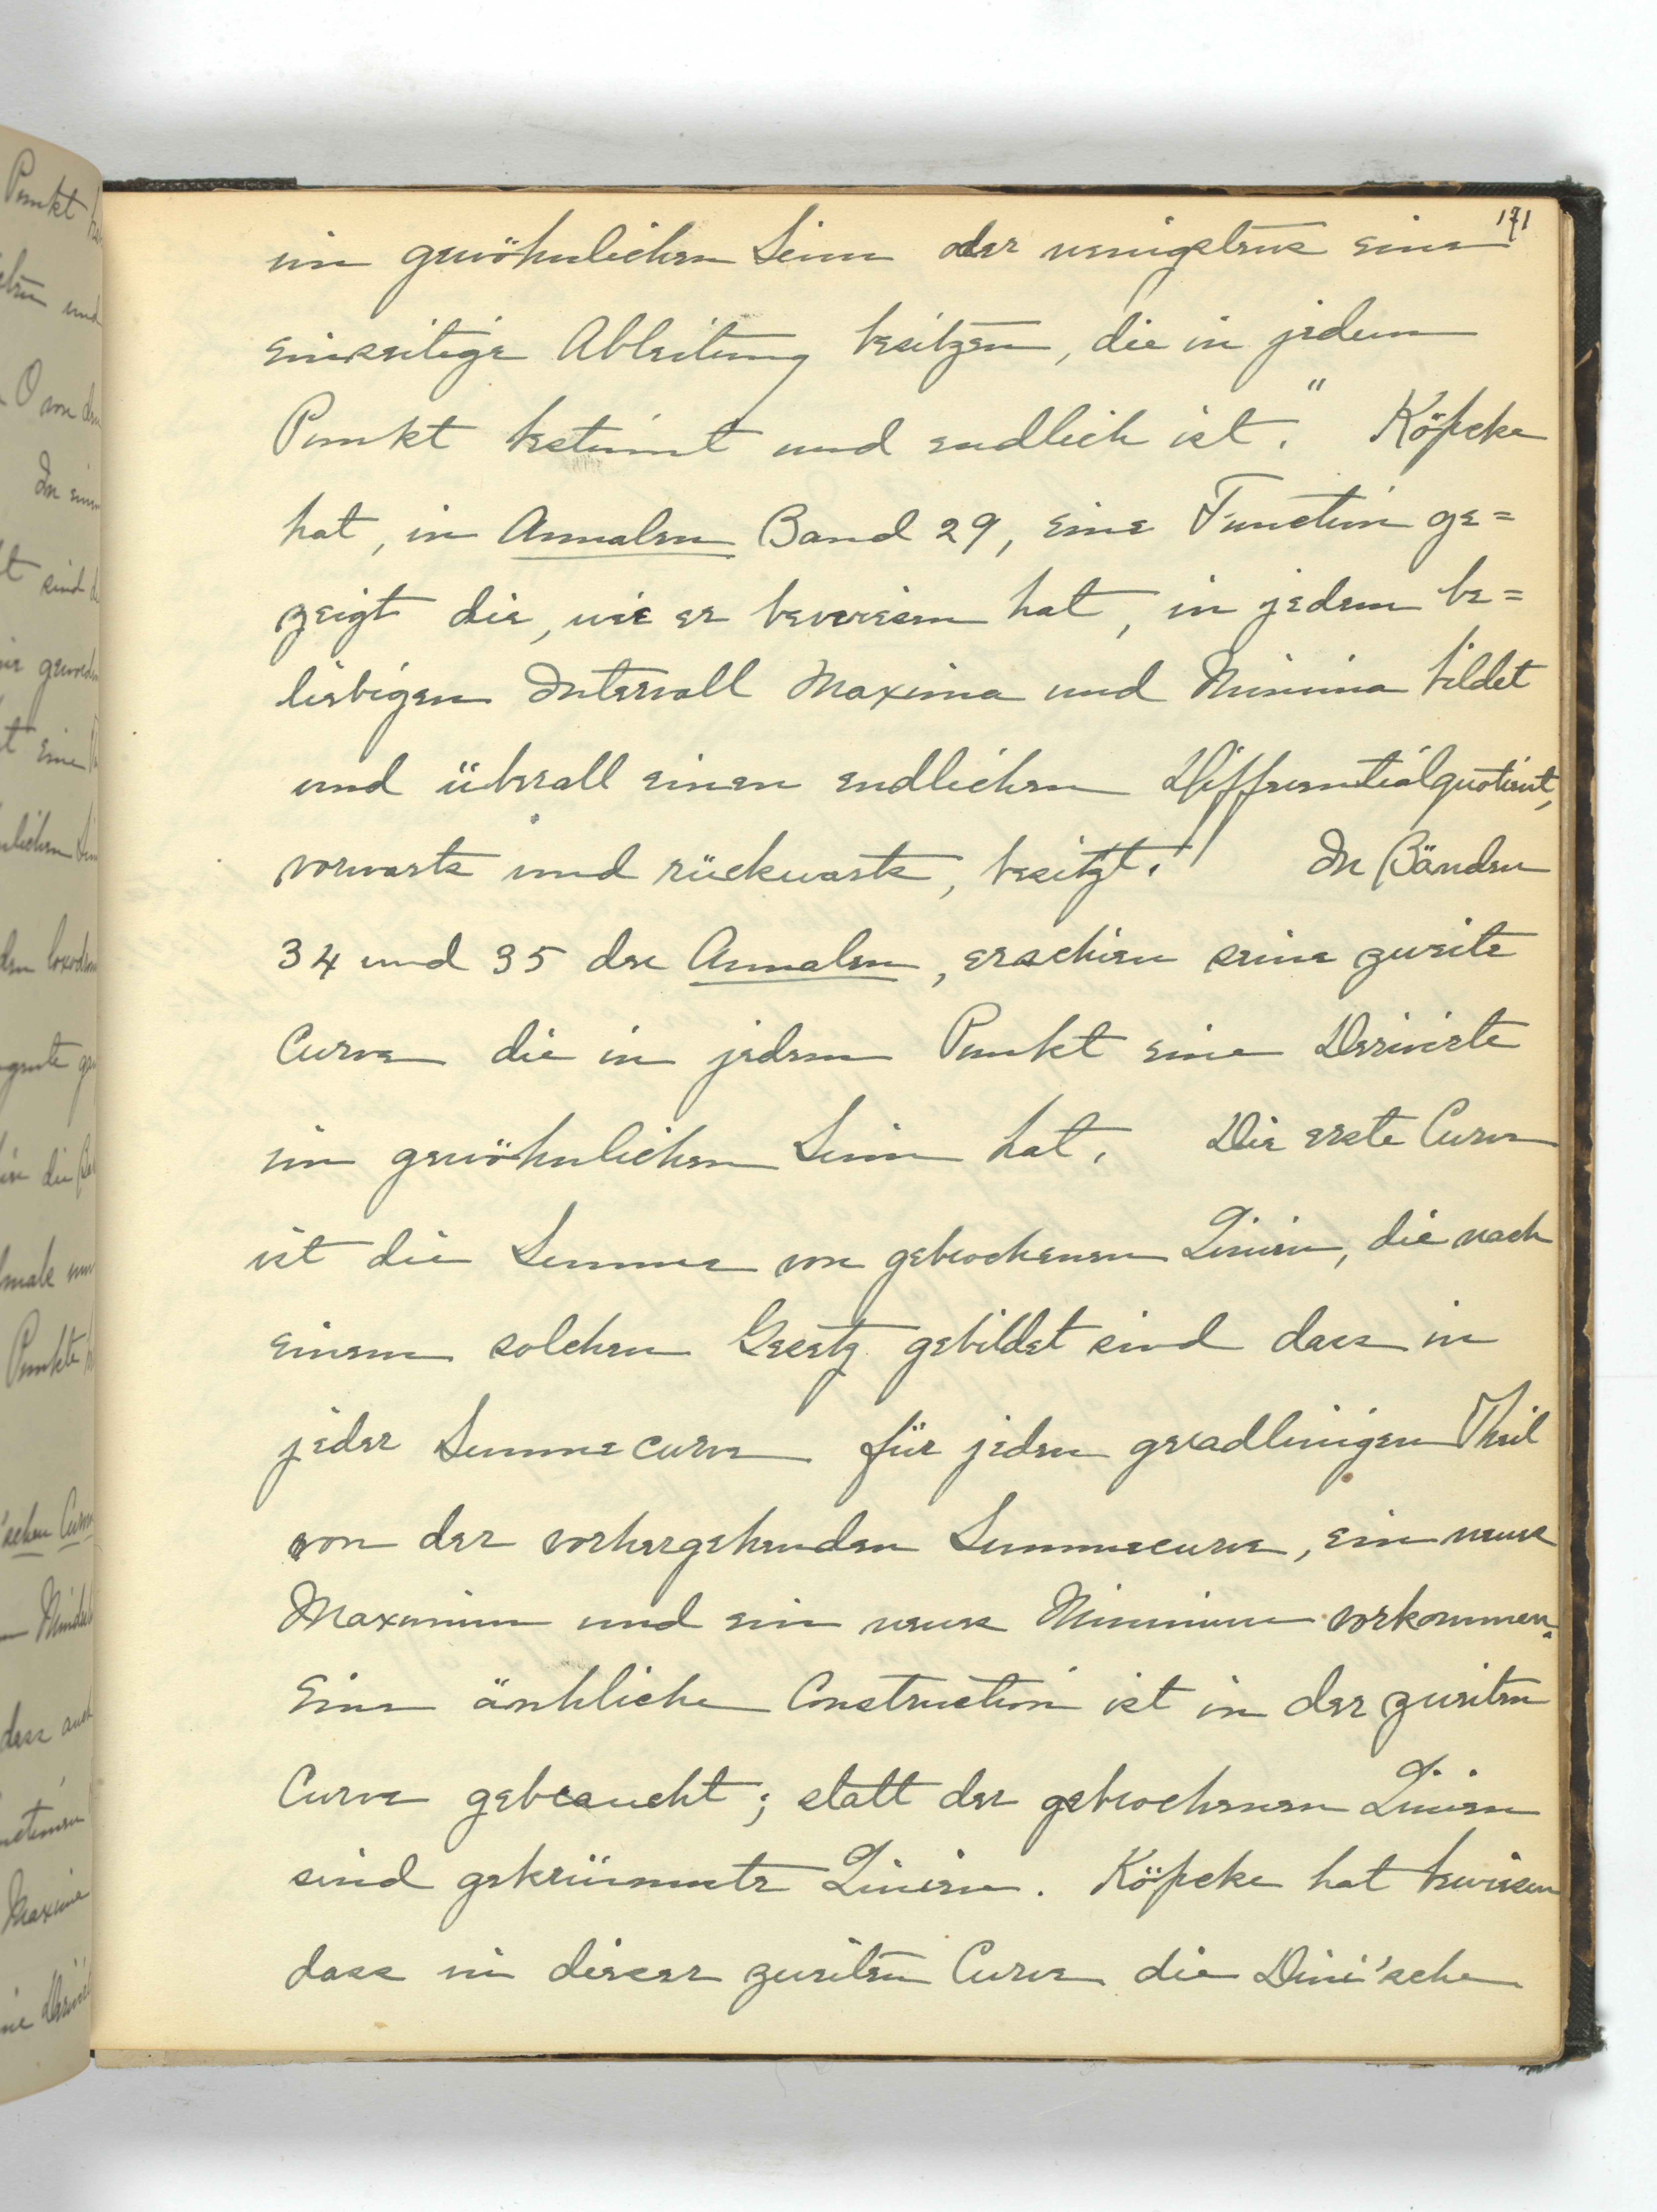 171
im gewöhnlichen Sinn oder wenigstens eine
einseitige Ableitung besitzen, die in jedem
Punkt bestimmt und endlich ist." Köpcke
hat, in Annalen Band 29, eine Function ge=
zeigt die, wie er bewiesen hat, in jedem be=
liebigen Intervall Maxima und Minima bildet
und überall einen endlichen Differentialquotient,
vorwarts und rückwarts, besitzt." In Bänden
34 und 35 der Annalen, erschien seine zweite
Curve die in jedem Punkt eine Derivirte
im gewöhnlichen Sinn hat. Die erste Curve
ist die Summe von gebrochenen Linien, die nach
einem solchen Gesetz gebildet sind dass in
jeder Summecurve für jeden geradlinigen Theil
von der vorhergehenden Summecurve, ein neues
Maximum und ein neues Minimum vorkommen.
Eine änhliche Construction ist in der zweiten
Curve gebraucht; statt der gebrochenen Linien
sind gekrümmte Linien. Köpcke hat bewiesen
dass in dieser zweiten Curve die Dini'sche